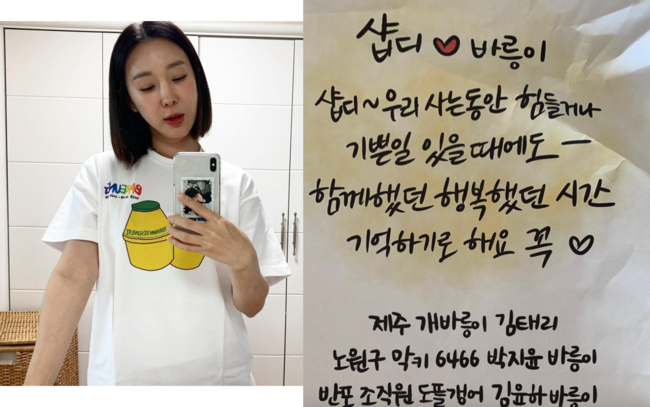 샵디 ♥ 바릉이
샵디~우리 사는동안 힘들거나
기쁜일 있을때에도 —
함께했던 행복했던 시간
기억하기로 해요 꼭 ♡
제주 개바릉이 김태리
노원구 막키 6466 박지윤 바릉이
반포 조직원 도플갱어 김윤하 바릉이